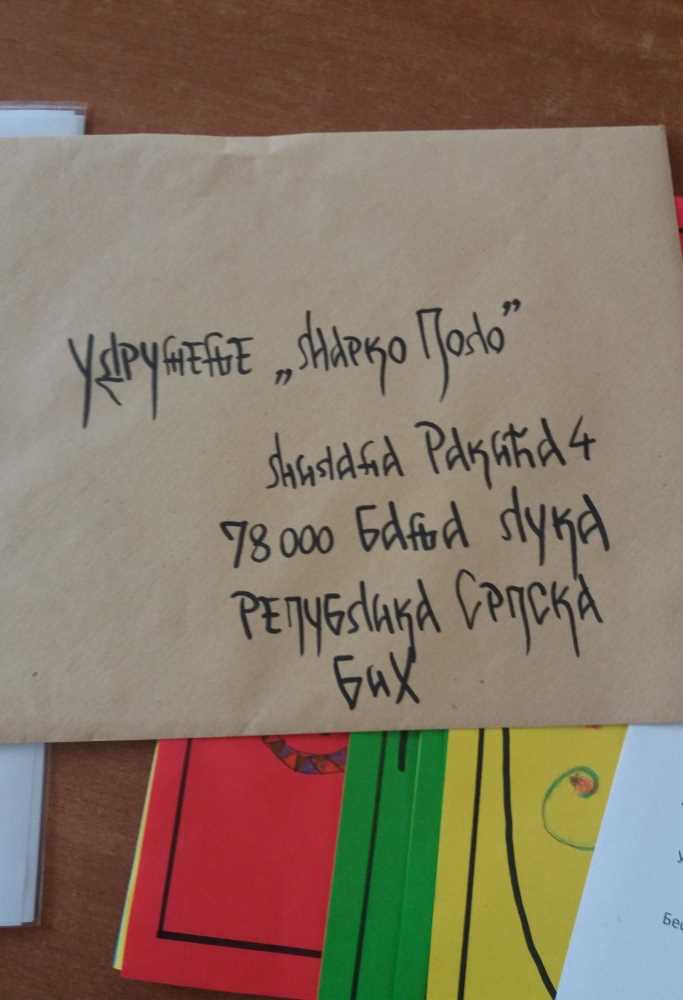 Удружење „Марко Поло”
Милана Ракића 4
78000 Бања Лука
Република Српска
БиХ